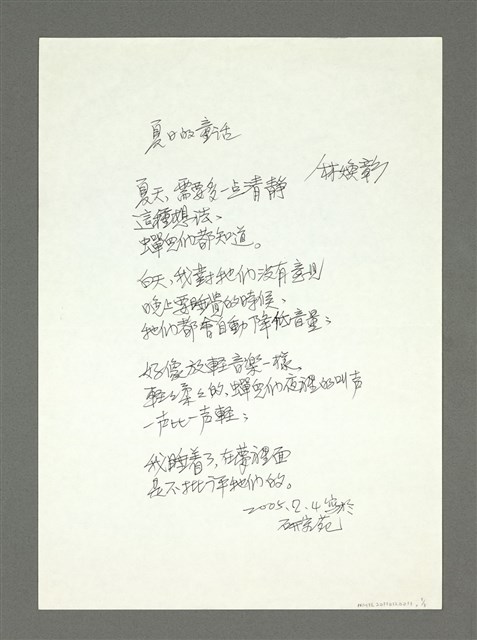 夏日的童话
林煥彰
夏天,需要多一点清静
這種想法、
蟬兒们都知道。
白天,我對牠们没有意見
晚上要睡覺的時候、
牠们都會自動降低音量;
好像放輕音樂一樣、
輕々柔々的,蟬兒们夜裡的叫声
一声比一声輕;
我睡着了,在夢裡面
是不批评牠们的。
2005.7.4寫於
研究苑